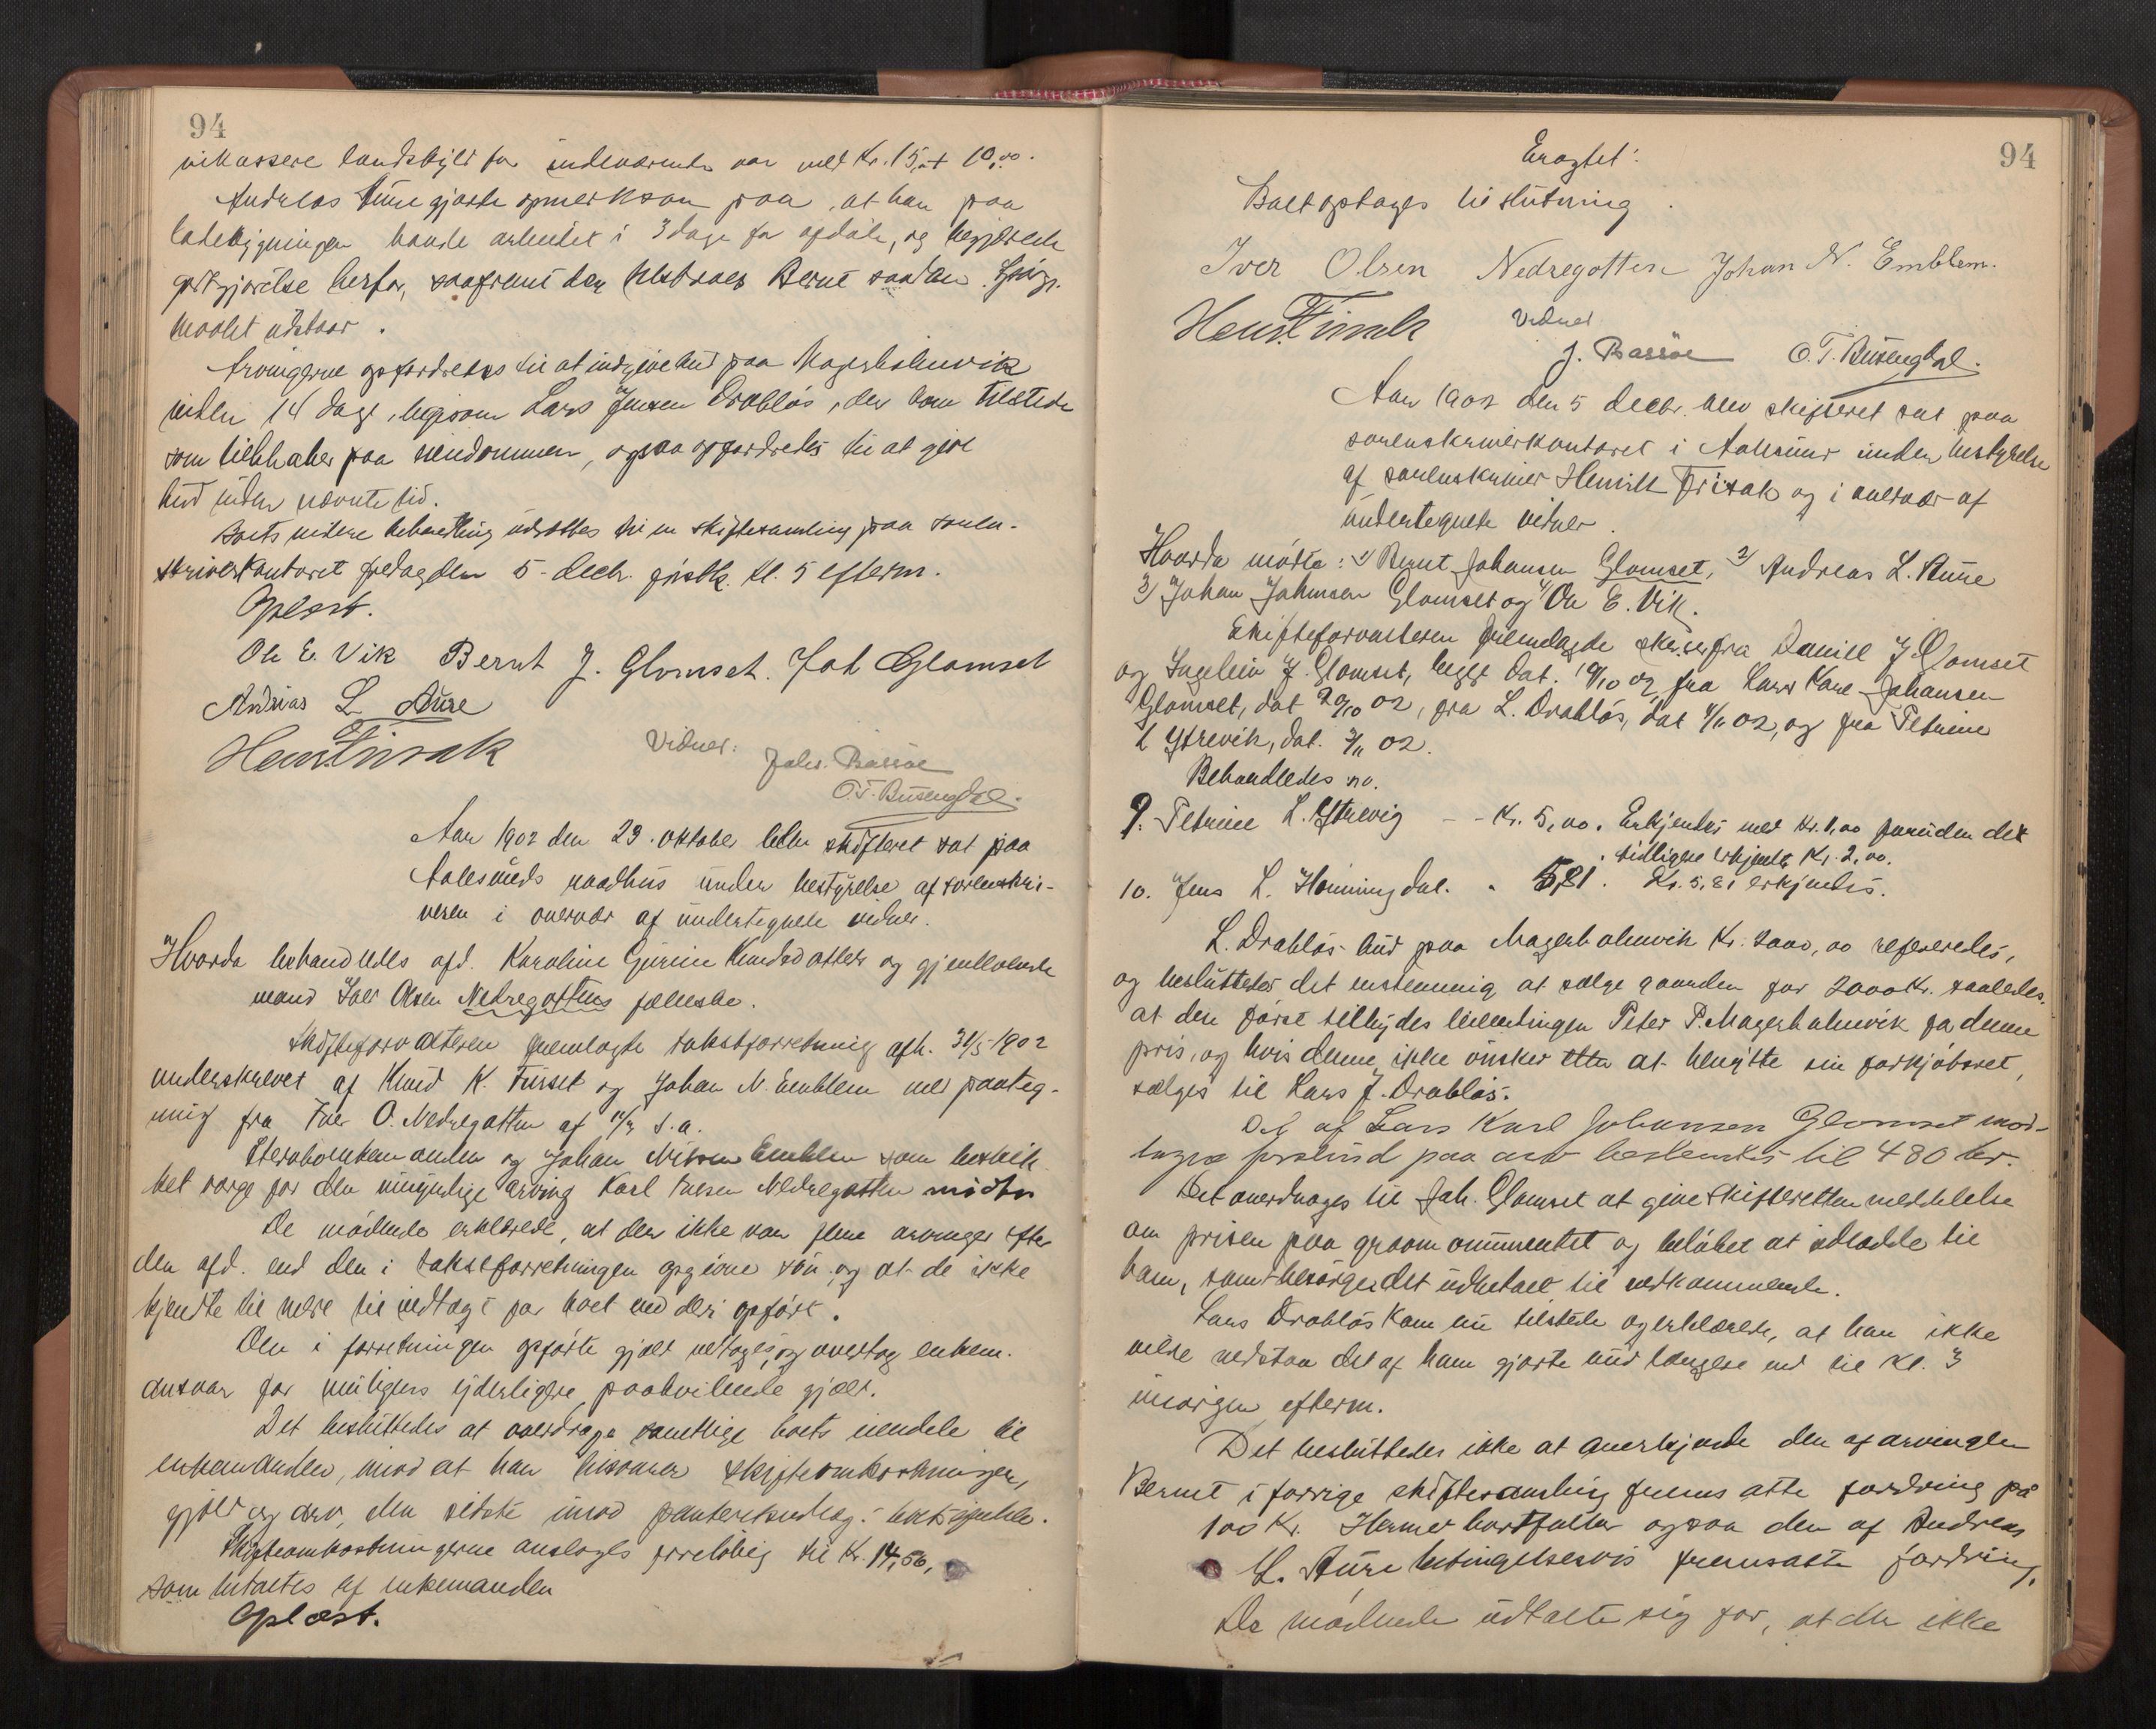 94
inkassere landskyld for indeværende aar med Kr. 15,00 + 10,00.
Andreas Aure gjorde opmerksom paa, at han paa
ladebygningen havde arbeidet i 3 dage for afdøde, og begjærede
godtgjørelse herfor, saafremt der tilstaaes Bernt saadan. Spørgs-
maalet udstaar.
Arvingerne opfordredes til at indgive bud paa Magerholmvik
inden 14 dage, ligesom Lars Jensen Drabløs, der kom tilstede
som liebhaber paa eiendommen, ogsaa opfordredes til at give
bud inden nævnte tid.
Boets videre behandling udsættes til en skiftesamling paa soren-
skriverkontoret fredag den 5. decbr. førstk. kl. 5 efterm.
Oplæst.
Ole E. Vik Bernt J. Glomset. Joh Glomset
Andrias L Aure
Henr. Finsak
Vidner: Johs. Bassøe
O.T. Busengdal.
Aar 1902 den 29. oktober blev skifteret sat paa
Aalesunds raadhus under bestyrelse af sorenskri-
veren i overvær af undertegnede vidner.
Hvorda behandledes afd. Karoline Gurine Knudsdatters og gjenlevende
mand Iver Olsen Nedregottens fællesbo.
Skifteforvalteren fremlagte takstforretning afh. 31/5 1902
underskrevet af Knud K. Furset og Johan N. Emblem med paateg-
ning fra Iver O. Nedregotten af s.a.
Stervboenkemanden og Johan Nilsen Emblem som beskik-
ket værge for den umyndige arving Karl Iversen Nedregotten mødte
De mødende erklærede, at der ikke var flere arvinger efter
den afd. end den i takstforretningen opgivne søn og at de ikke
kjendte til mere til indtægt for boet end deri opført.
Den i forretningen opførte gjæld vedtoges, og overtog enkem.
ansvar for muligens yderligere paahvilende gjæld.
Det besluttedes at overdrage samtlige boets eiendele til
enkemanden, imod at han tilsvarer skifteomkostninger,
gjæld og arv, den sidste imod panteretsudlæg i boets
Skifteomkostningerne ansloges foreløbig til Kr. 14,56,
som betaltes af enkemanden
Oplæst.
94
Eragtet:
Boet optages til slutning.
Iver Olsen Nedregotten Johan N. Emblem.
Henr. Finsak
Vidner
J. Bassøe O.T. Busengdal.
Aar 1902 den 5 decbr. blev skifteret sat paa
sorenskriverkontoret i Aalesund under bestyrelse
af sorenskriver Henrik Frisak og i overvær af
undertegnede vidner.
Hvorda mødte: 1) Bernt Johansen Glomset, 2) Andreas L. Aure
3) Johan Johansen Glomset og 4) Ole E. Vik.
Skifteforvalteren fremlagde skr. fra Daniel J. Glomset
og J. Glomset, begge dat. 19/10 02, fra Lars Karl Johansen
Glomset, dat 20/10 02, fra L. Drabløs, dat 4/11 02, og fra Petrine
L Ytrevik, dat. 3/11 02.
Behandledes no.
9. Petrine L. Ytrevig - - Kr. 5,00. Erkjendes med Kr. 1,00 foruden det
tidligere erkjendte Kr. 2,00.
10. Jens L. Honningdal. " 5,81. Kr. 5,81 erkjendes.
L. Drabløs bud paa Magerholmvik Kr. 2000,00 refereredes,
og besluttedes det enstemmig at sælge gaarden for 2000 Kr. saaledes,
at den først tilbydes leilendingen Peter P. Magerholmvik for denne
pris, og hvis denne ikke ønsker at benytte sin forkjøbsret,
sælges til Lars J. Drabløs.
Det af Lars Karl Johansen Glomset mod-
tagne forskud paa arv bestemtes til 480 kr.
Det overdrages til Joh. Glomset at give skifteretten meddelelse
om prisen paa gravmonumentet og beløbet at udbetale til
ham, samt besørger det udbetalt til vedkommende.
Lars Drabløs kom nu tilstede og erklærede, at han ikke
vilde vedstaa det af ham gjorte bud længere end til kl. 3
imorgen efterm.
Det besluttedes ikke at anerkjende den af arvingen
Bernt i forrige skiftesamling fremsatte fordring på
100 Kr. Hermed bortfalder ogsaa den af Andreas
L. Aure betingelsesvis fremsatte fordring.
De mødende udtalte sig for, at der ikke